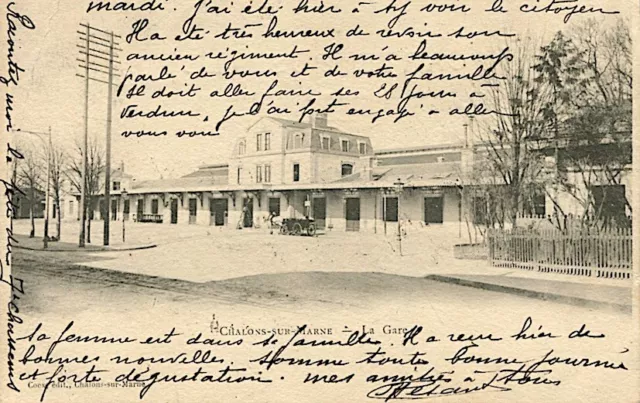 mardi. J'ai été hier à voir le citoyen
Il a été très heureux de revoir son
ancien régiment. Il m'a beaucoup
parlé de vous et de votre famille
Il doit aller faire ses 28 jours à
Verdun, je l'ai fort engagé à aller
vous voir
CHALONS-SUR-MARNE — La Gare
Sa femme est dans sa famille. Il a reçu hier de
bonnes nouvelles. Somme toute bonne journée
et forte dégustation. mes amitiés à tous
édit., Châlons-sur-Marne
Racontez moi la fête du 7e chasseurs